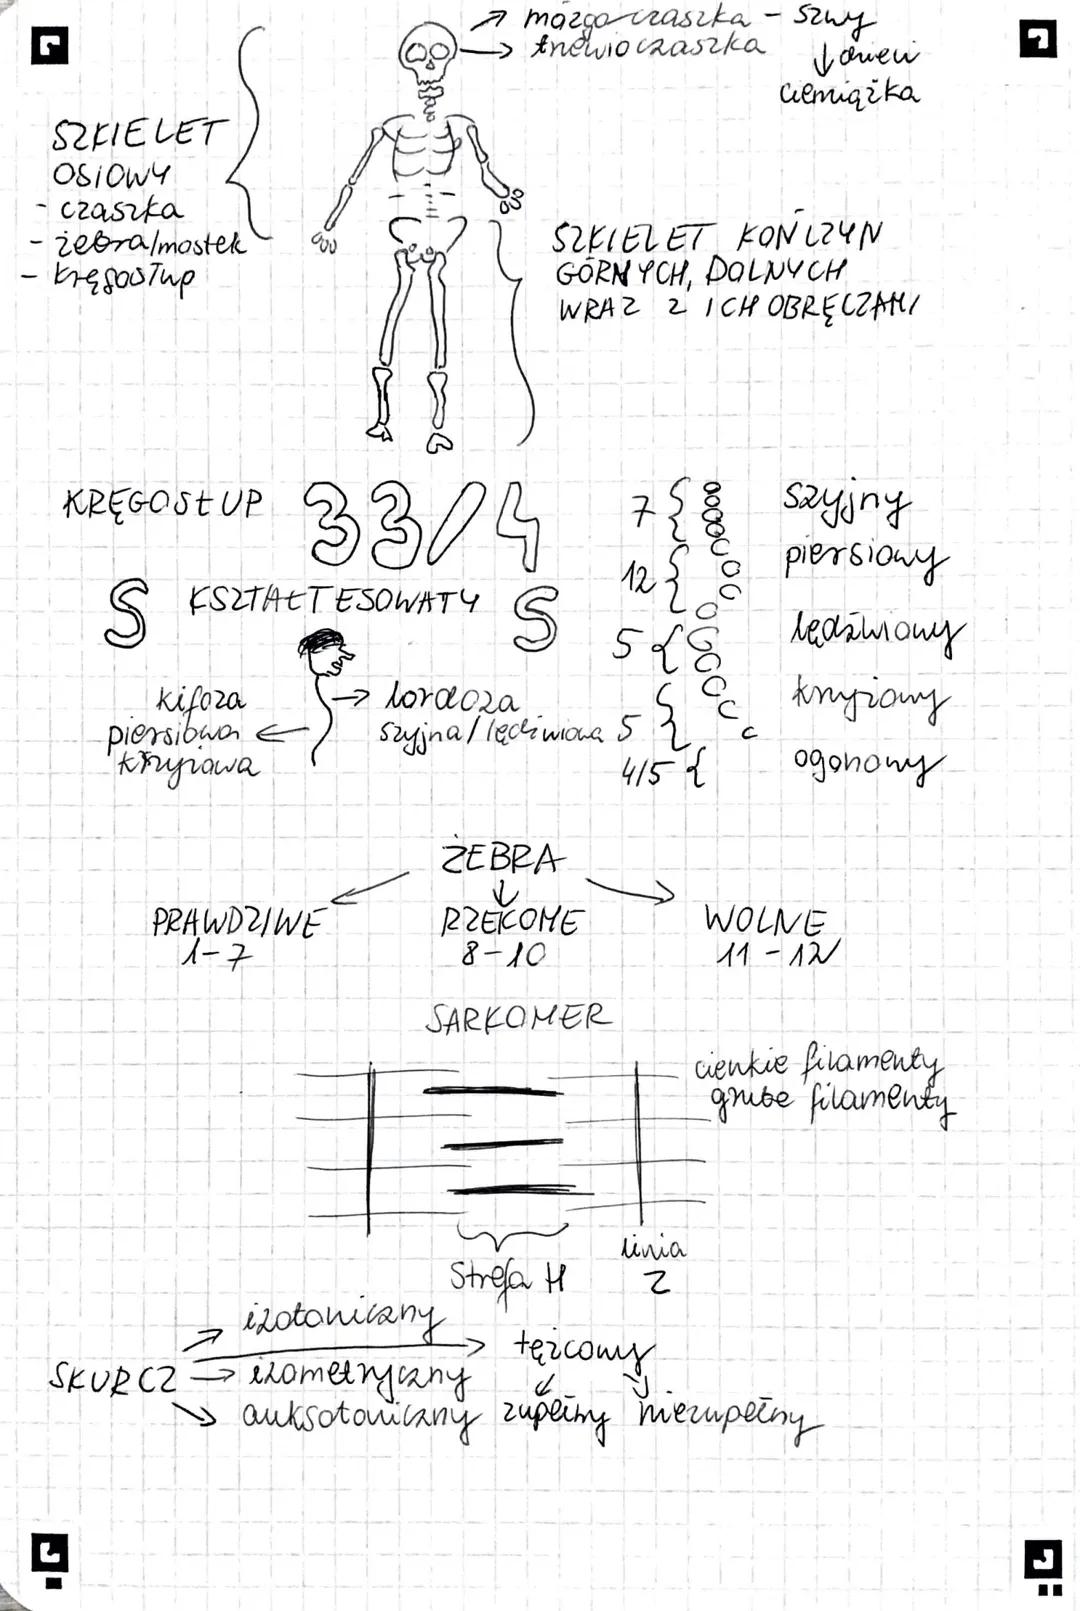 mózgoczaszka - szwy
trzewioczaszka
↓ dzieci
ciemiączka
SZKIELET
OSIOWY
- czaszka
- żebra/mostek
- kręgosłup
SZKIELET KOŃCZYN
GÓRNYCH, DOLNYCH
WRAZ Z ICH OBRĘCZAMI
KRĘGOSŁUP 33/4
S KSZTAŁT ESOWATY S
kifoza
piersiowa
krzyżowa
lordoza
szyjna/lędźwiowa
7 szyjny
12 piersiowy
5 lędźwiowy
5 krzyżowy
4/5 ogonowy
ŻEBRA
PRAWDZIWE RZEKOME WOLNE
1-7 8-10 11-12
SARKOMER
cienkie filamenty
grube filamenty
Strefa H
linia
Z
SKURCZ
izotoniczny
izometryczny
auksotoniczny
tężcowy
zupełny niezupełny